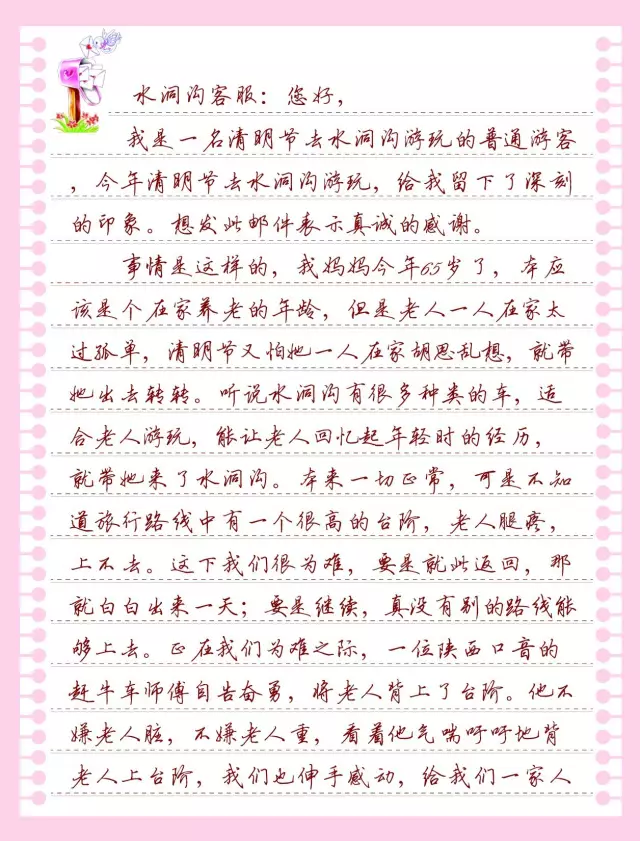 水洞沟客服：您好，
我是一名清明节去水洞沟游玩的普通游客
，今年清明节去水洞沟游玩，给我留下了深刻
的印象。想发此邮件表示真诚的感谢。
事情是这样的，我妈妈今年65岁了，本应
该是个在家养老的年龄，但是老人一人在家太
过孤单，清明节又怕她一人在家胡思乱想，就带
她出去转转。听说水洞沟有很多种类的车，适
合老人游玩，能让老人回忆起年轻时的经历，
就带她来了水洞沟。本来一切正常，可是不知
道旅行路线中有一个很高的台阶，老人腿疼，
上不去。这下我们很为难，要是就此返回，那
就白白出来一天；要是继续，真没有别的路线能
够上去。正在我们为难之际，一位陕西口音的
赶牛车师傅自告奋勇，将老人背上了台阶。他不
嫌老人脏，不嫌老人重，看着他气喘吁吁地背
老人上台阶，我们也伸手感动，给我们一家人